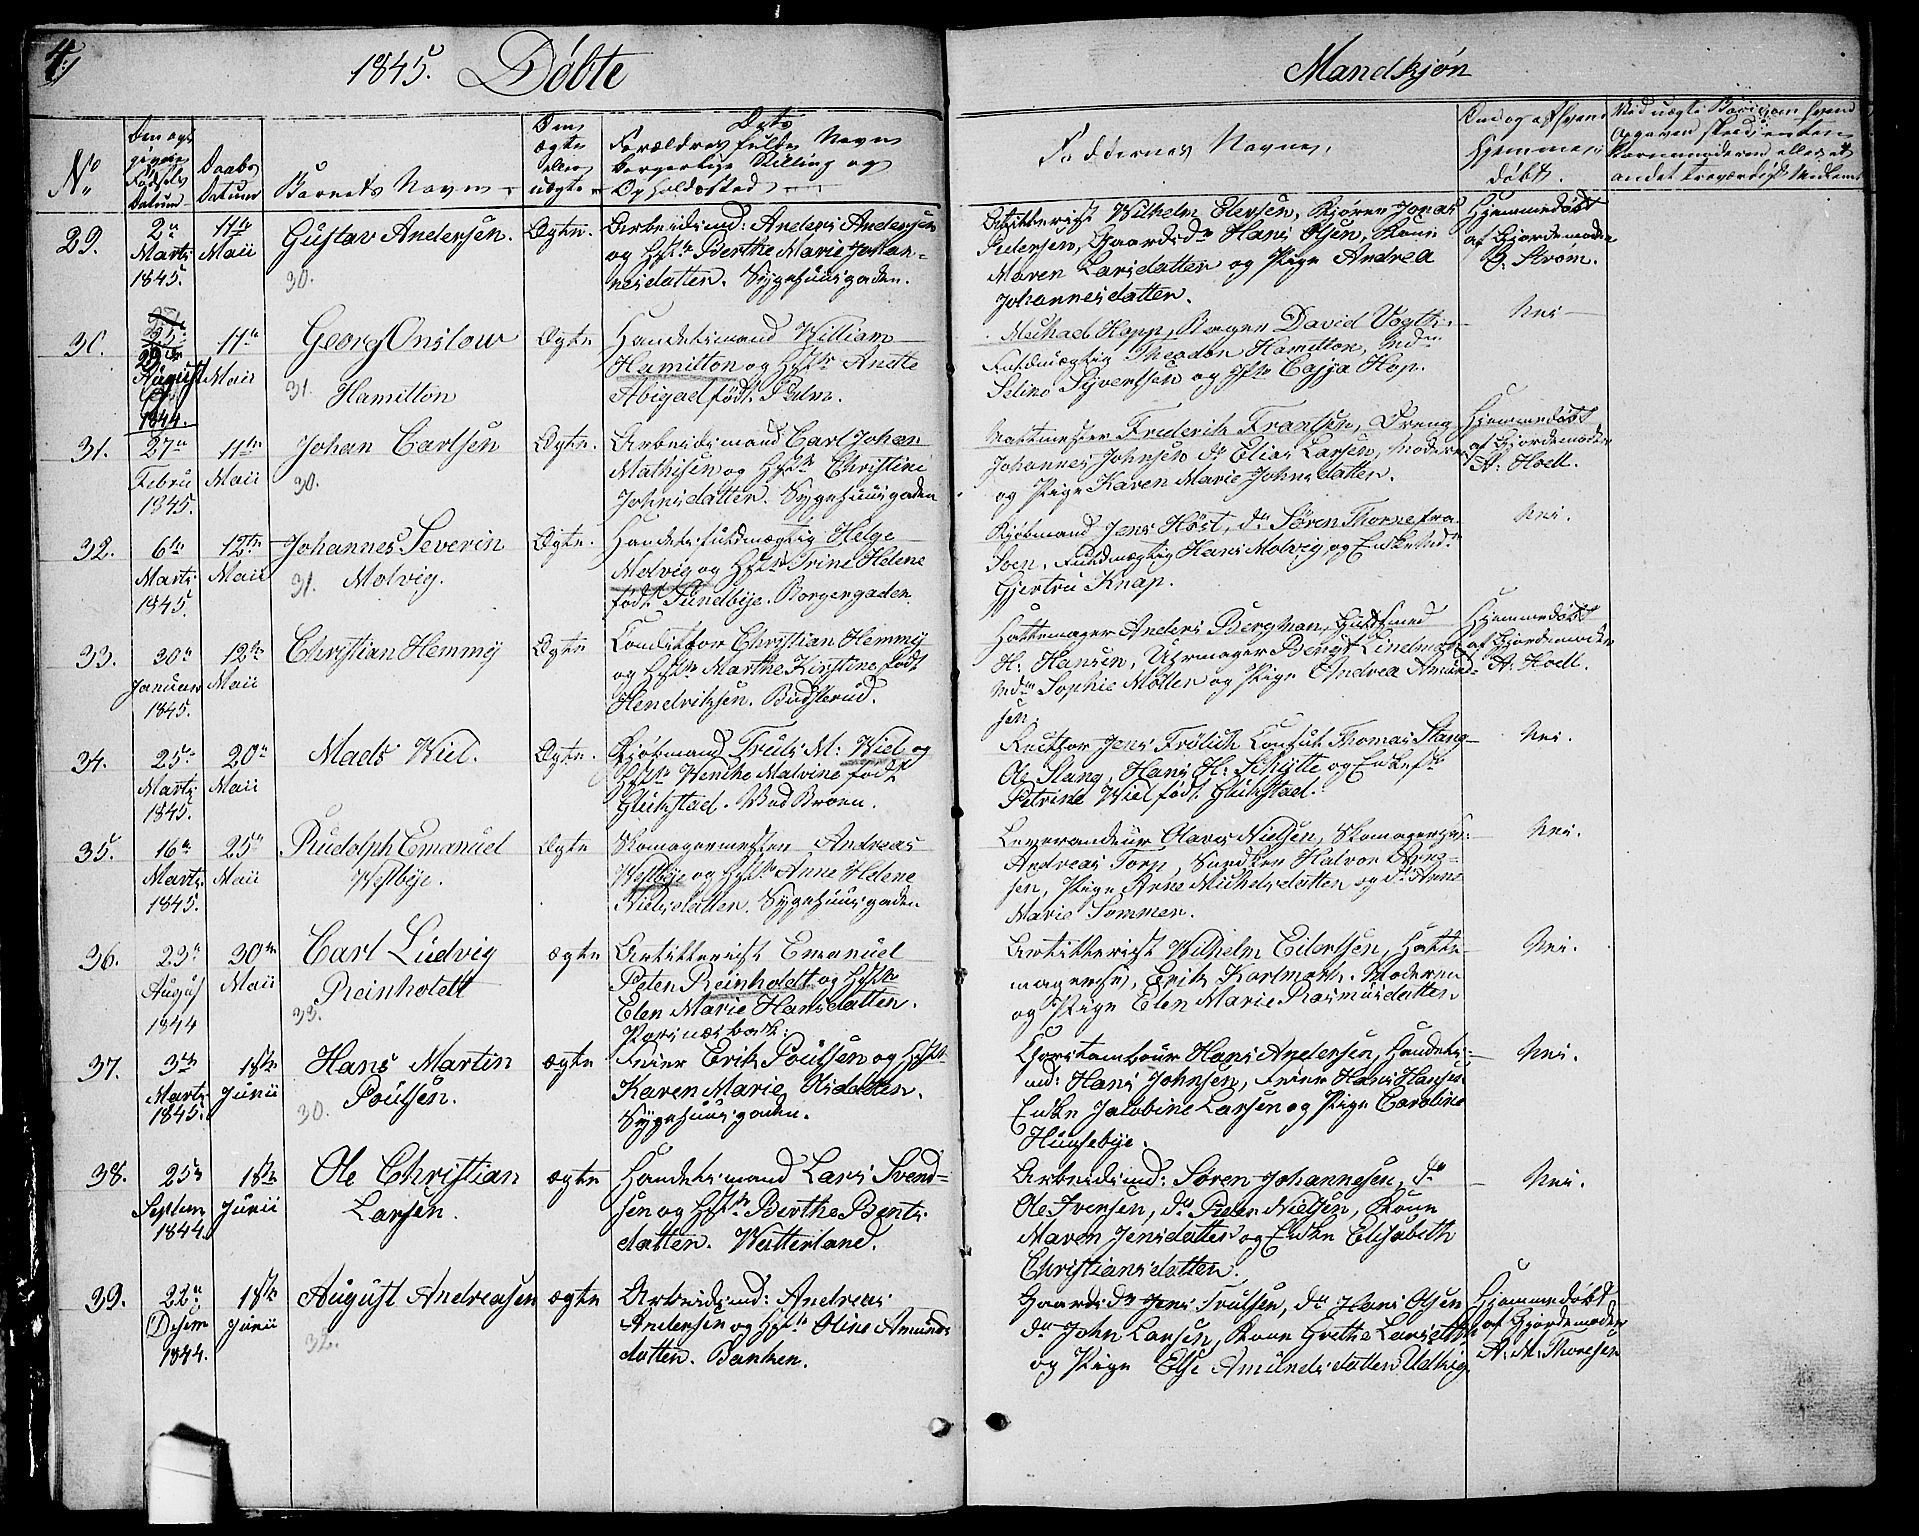 4.
1845. Döbte
Mandkjön
No
Den opgivne Fødsels Datum
Daabs Datum
Barnets Navn
Om ægte eller uægte
Dets Forældres fulde Navn borgerlige Stilling og Opholdssted
Faddernes Navne
29.
2n Marts 1845.
11te Maii
Gustav Andersen.
30.
Ægte.
Arbeidsmd: Anders Andersen
og Hstr Berthe Marie Johan-
nesdatter. Sygehuusgaden.
Artillerist Wilhelm Elersen, Kjører Jonas
Pedersen, Gaardsdr Hans Olsen, Kone
Maren Larsdatter og Pige Andrea
Johannesdatter.
Hjemmedøbt
af Gjordemoder
Strøm.
30.
August
1844.
11te Maii
Georg Onslow
31. Hamilton
Ægte
Handelsmand William
Hamilton og Hstr
Abigael født Palm.
Michael Hopp, David Vogth
Fuldmægtig Theodor Hamilton, Mdm
Seline Syvertsen og Hopp.
Nei
31.
27n Febru 1845.
11te Maii
Johan Carlsen
30.
Ægte.
Arbeidsmand Carl Johan
Mathisen og Hstr Christine
Johnsdatter. Sygehuusgaden
Frederik Frantsen, Dreng
Johannes Johnsen do Elias Larsen, Moderen
og Pige Karen Marie Johnsdatter.
Hjemmedøbt
af Gjordemoder
A. Hoell.
32.
6te Marts 1845.
12te Maii
Johannes Severin
31. Molvig.
Ægte.
Handelsfuldmægtig Helge
Molvig og Hstr Trine Helene
født Sundbye. Borgergaden.
Kjøbmand Jens Höst, do Sören Thorne
Fuldmægtig Hans Molvig, og Enke Mdm
Gjertru Knap.
Nei.
33.
30n Januar 1845.
12te Maii
Christian Hemmy
Ægte
Conditor Christian Hemmy
og Hstr Marthe Kirstine født
Hendriksen. Budsterud.
Hattemager Anders Bergman, Guldsmed
H. Hansen, Uhrmager Bengt Lindmark
Mdm Sophie Möller og Pige Andrea Amund-
sen.
Hjemmedøbt
af Gjordemoder
A. Hoell.
34.
25n Marts 1845.
20n Maii
Mads Wiel.
Ægte.
Kjøbmand Truls M: Wiel og
Hstr Wenche Malvine født
Glükstad. Ved Broen.
Rector Jens Frölich Consul Thomas Stang
Ole Stang, Hans H: Schytte og Enkefr
Petrine Wiel født Glükstad.
Nei.
35.
16n Marts 1845.
25n Maii
Rudolph Emanuel
Westbye.
Ægte
Skomagermester Andreas
Westbye og Hstr Anne Helene
Nielsdatter. Sygehuusgaden
Leverandeur Olavus Nielsen, Skomagersv:
Andreas Torp, Snedker Halvor
sen, Pige Anne Michelsdatter og do Anne
Marie Sommer.
Nei.
36.
23n August 1844
30te Maii
Carl Ludvig
Reinholdt
33.
ægte
Artillerist Emanuel
Peter Reinholdt og Hstr
Elen Marie Hansdatter.
Artillerist Wilhelm Eilertsen, Hatte-
magersv, Erik Karlmark. Moderen
og Pige Elen Marie Rasmusdatter
Nei.
37.
3te Marts 1845.
1ste Junii
Hans Martin
Poulsen.
30.
ægte
Feier Erik Poulsen og Hstr
Karen Marie Olsdatter.
Sygehuusgaden.
Corstambour Hans Andersen, Handels-
md: Hans Johnsen, Feier Hans Hansen
Enke Jacobine Larsen og Pige Caroline
Huusebye.
Nei.
38.
25n Septemr 1844.
1ste Junii
Ole Christian
Larsen.
ægte
Handelsmand Lars Svend-
sen og Hstr Berthe Bents-
datter. Watterland.
Arbeidsmd: Søren Johannesen, do
Ole Iversen, do Peder Nielsen, Kone
Maren Jensdatter og Enke Elisabeth
Christiansdatter.
Nei.
39.
22n Decem 1844.
1ste Junii
August Andreasen
32.
ægte
Arbeidsmd: Andreas
Andersen og Hstr Oline Amunds
datter. Banken.
Gaardsdr Jens Trulsen, do Hans Olsen
do John Larsen, Kone Grethe Larsdatter
og Pige Else Amundsdatter Udkig
Hjemmedøbt
af Gjordemoder
A. M. Thoresen